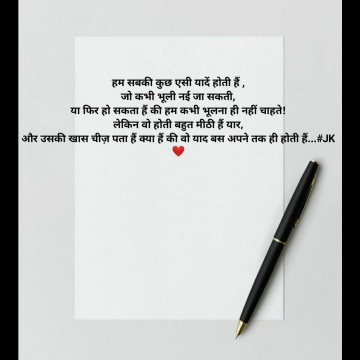 हम सबकी कुछ एसी यादें होती हैं ,
जो कभी भूली नई जा सकती,
या फिर हो सकता हैं की हम कभी भूलना ही नहीं चाहते!
लेकिन वो होती बहुत मीठी हैं यार,
और उसकी खास चीज़ पता हैं क्या हैं की वो याद बस अपने तक ही होती हैं...#JK
❤️